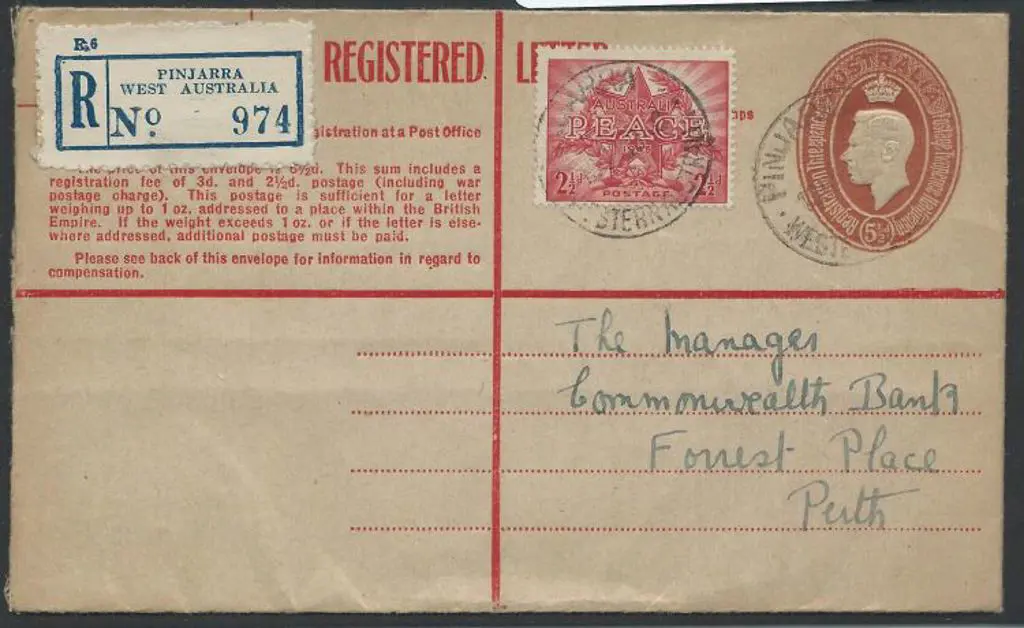 R.6
R
PINJARRA
WEST AUSTRALIA
No 974
REGISTERED
gistration at a Post Office
The price of this envelope is 6½d. This sum includes a
registration fee of 3d. and 2½d. postage (including war
postage charge). This postage is sufficient for a letter
weighing up to 1 oz. addressed to a place within the British
Empire. If the weight exceeds 1 oz. or if the letter is else-
where addressed, additional postage must be paid.
Please see back of this envelope for information in regard to
compensation.
AUSTRALIA
PEACE
2½d 2½d
POSTAGE
STERN
aps
AUSTRALIA
5½d
PINJA
WESTE
The Manager
Commonwealth Bank
Forrest Place
Perth